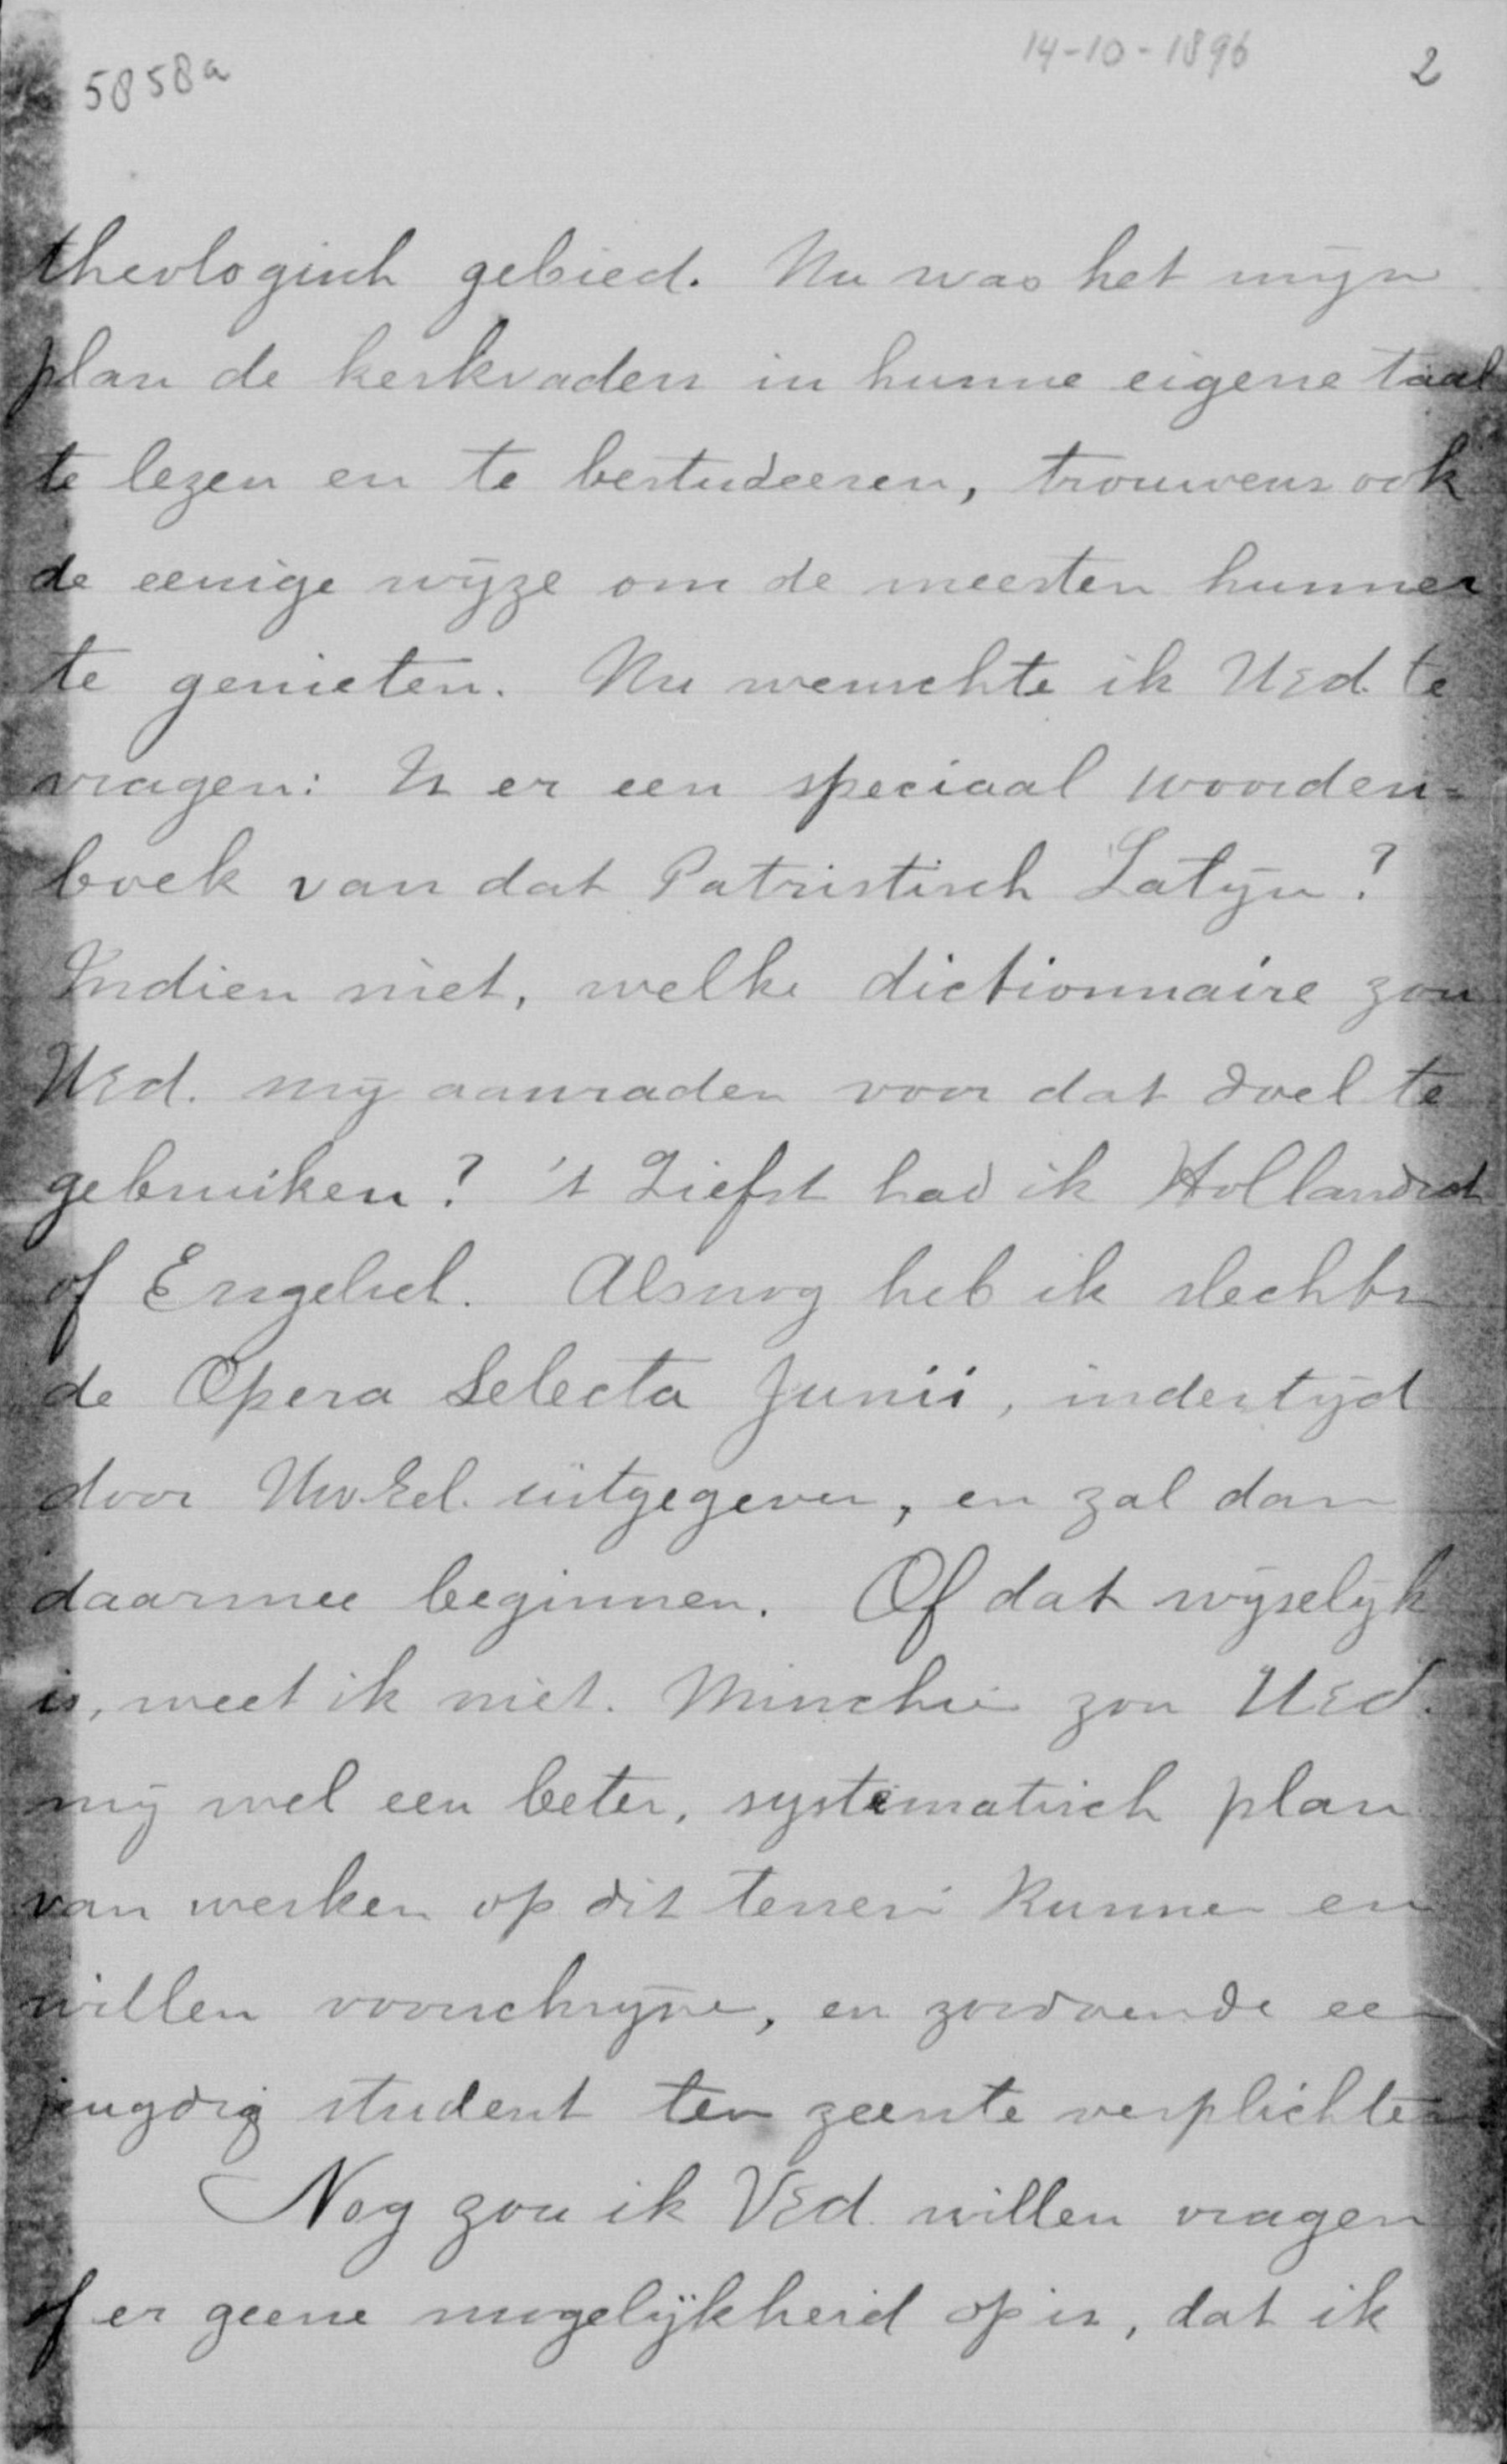 5858a
14-10-1896
2
theologisch gebied. Nu was het mijn
plan de kerkvaders in hunne eigene taal
te lezen en te bestudeeren, trouwens ook
de eenige wijze om de meesten hunner
te genieten. Nu wenschte ik UEd. te
vragen: Is er een speciaal woorden-
boek van dat Patristisch Latijn?
Indien niet, welke dictionnaire zou
UEd. mij aanraden voor dat doel te
gebruiken? 't Liefst had ik Hollandsch
of Engelsch. Alsnog heb ik slechts
de Opera Selecta Junii, indertijd
door UwEd. uitgegeven, en zal dan
daarmee beginnen. Of dat wijselijk
is, weet ik niet. Misschien zou UEd.
mij wel een beter, systematisch plan
van werken op dit terrein kunnen en
willen voorschrijven, en zoodoende een
jeugdig student ten zeerste verplichten
Nog zou ik UEd. willen vragen
of er geene mogelijkheid op is, dat ik